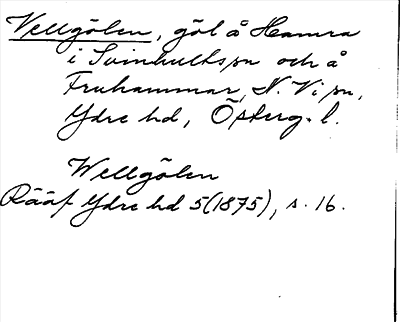 Vellgölen, göl å Hamra
i Svinhults sn och å
Fruhammar, N. Vi sn,
Ydre hd, Österg. l.
Wellgölen
Rääf Ydre hd 5(1875), s. 16.